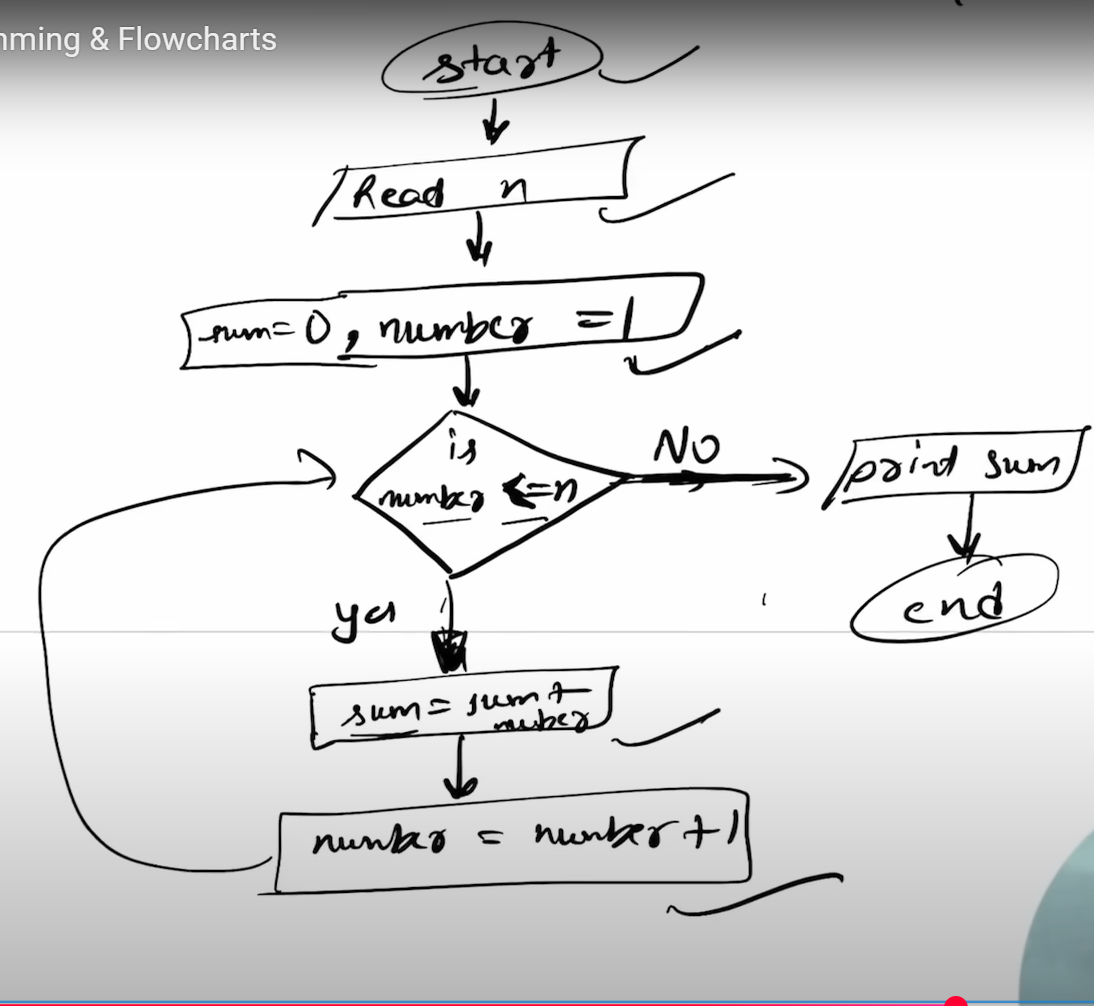 mming & Flowcharts
start
Read n
sum=0, number =1
is
number <=n
NO
print sum
end
yes
sum = sum +
number
number = number + 1